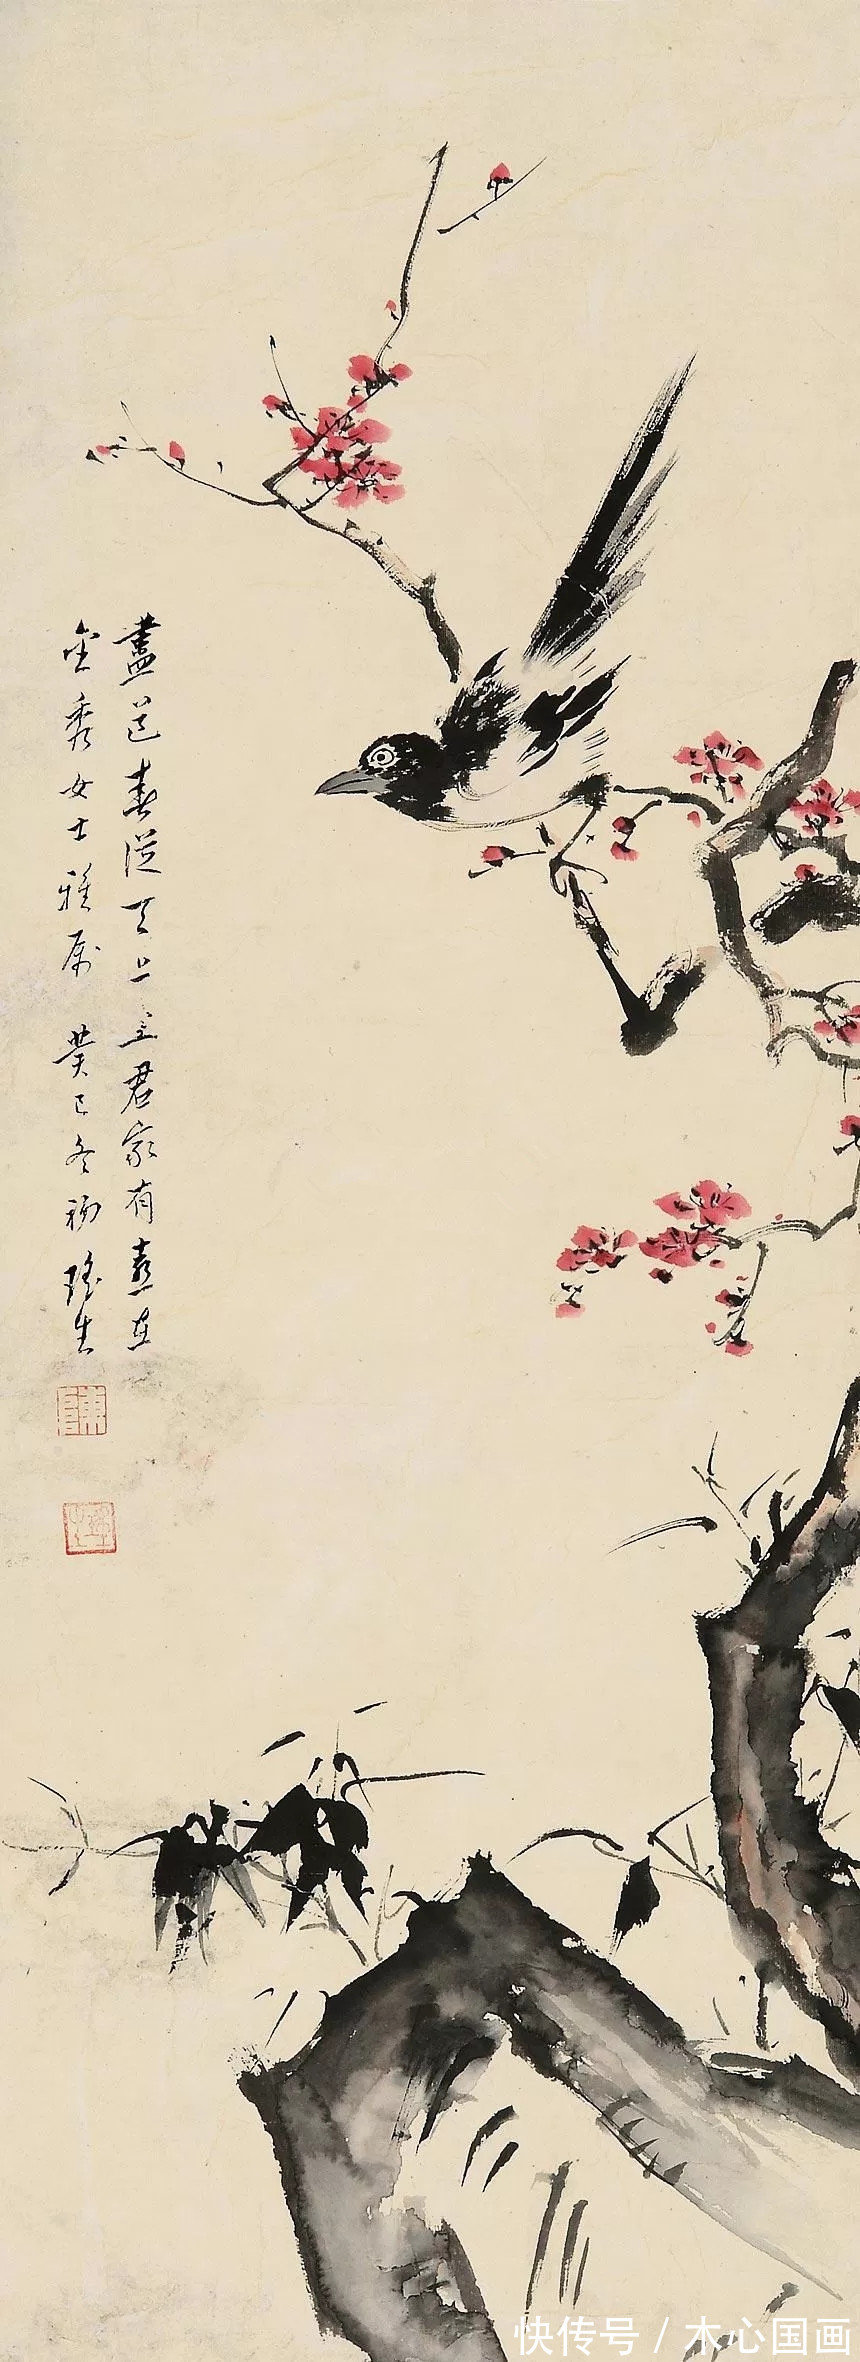 盡道春從天上至君家有喜在
金秀女士雅属 癸巳冬初 瑤生
快传号 / 木心国画